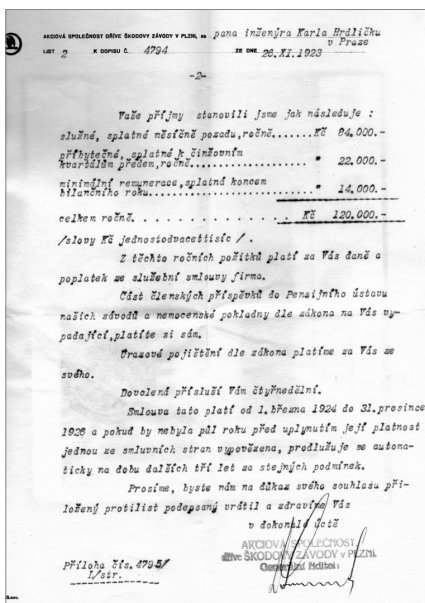 AKCIOVÁ SPOLEČNOST DŘÍVE ŠKODOVY ZÁVODY V PLZNI, na pana inženýra Karla Hrdličku
v Praze
LIST 2 K DOPISU Č. 4794 ZE DNE 26.XI.1923
-2-
Vaše příjmy stanovili jsme jak následuje :
služné, splatné měsíčně pozadu,ročně.......Kč 84.000.-
příbytečné, splatné k činžovním
kvartálům předem,ročně........ " 22.000.-
minimální remunerace,splatná koncem
bilančního roku........ " 14.000.-
celkem ročně. . . . . . . . . . . . . Kč 120.000.-
/slovy Kč jednostodvacettisíc /.
Z těchto ročních požitků platí za Vás daně a
poplatek ze služební smlouvy firma.
Část členských příspěvků do Pensijního ústavu
našich závodů a nemocenské pokladny dle zákona na Vás vy-
padající,platíte si sám.
Úrazové pojištění dle zákona platíme za Vás ze
svého.
Dovolená přísluší Vám čtyřnedělní.
Smlouva tato platí od 1.března 1924 do 31.prosince
1926 a pokud by nebyla půl roku před uplynutím její platnost
jednou ze smluvních stran vypovězena, prodlužuje se automa-
ticky na dobu dalších tří let za stejných podmínek.
Prosíme, byste nám na důkaz svého souhlasu při-
ložený protilist podepsaný vrátil a zdravíme Vás
v dokonalé úctě
AKCIOVÁ SPOLEČNOST,
dříve ŠKODOVY ZÁVODY v PLZNI.
Generální ředitel:
Příloha čís. 4795/
I/str.